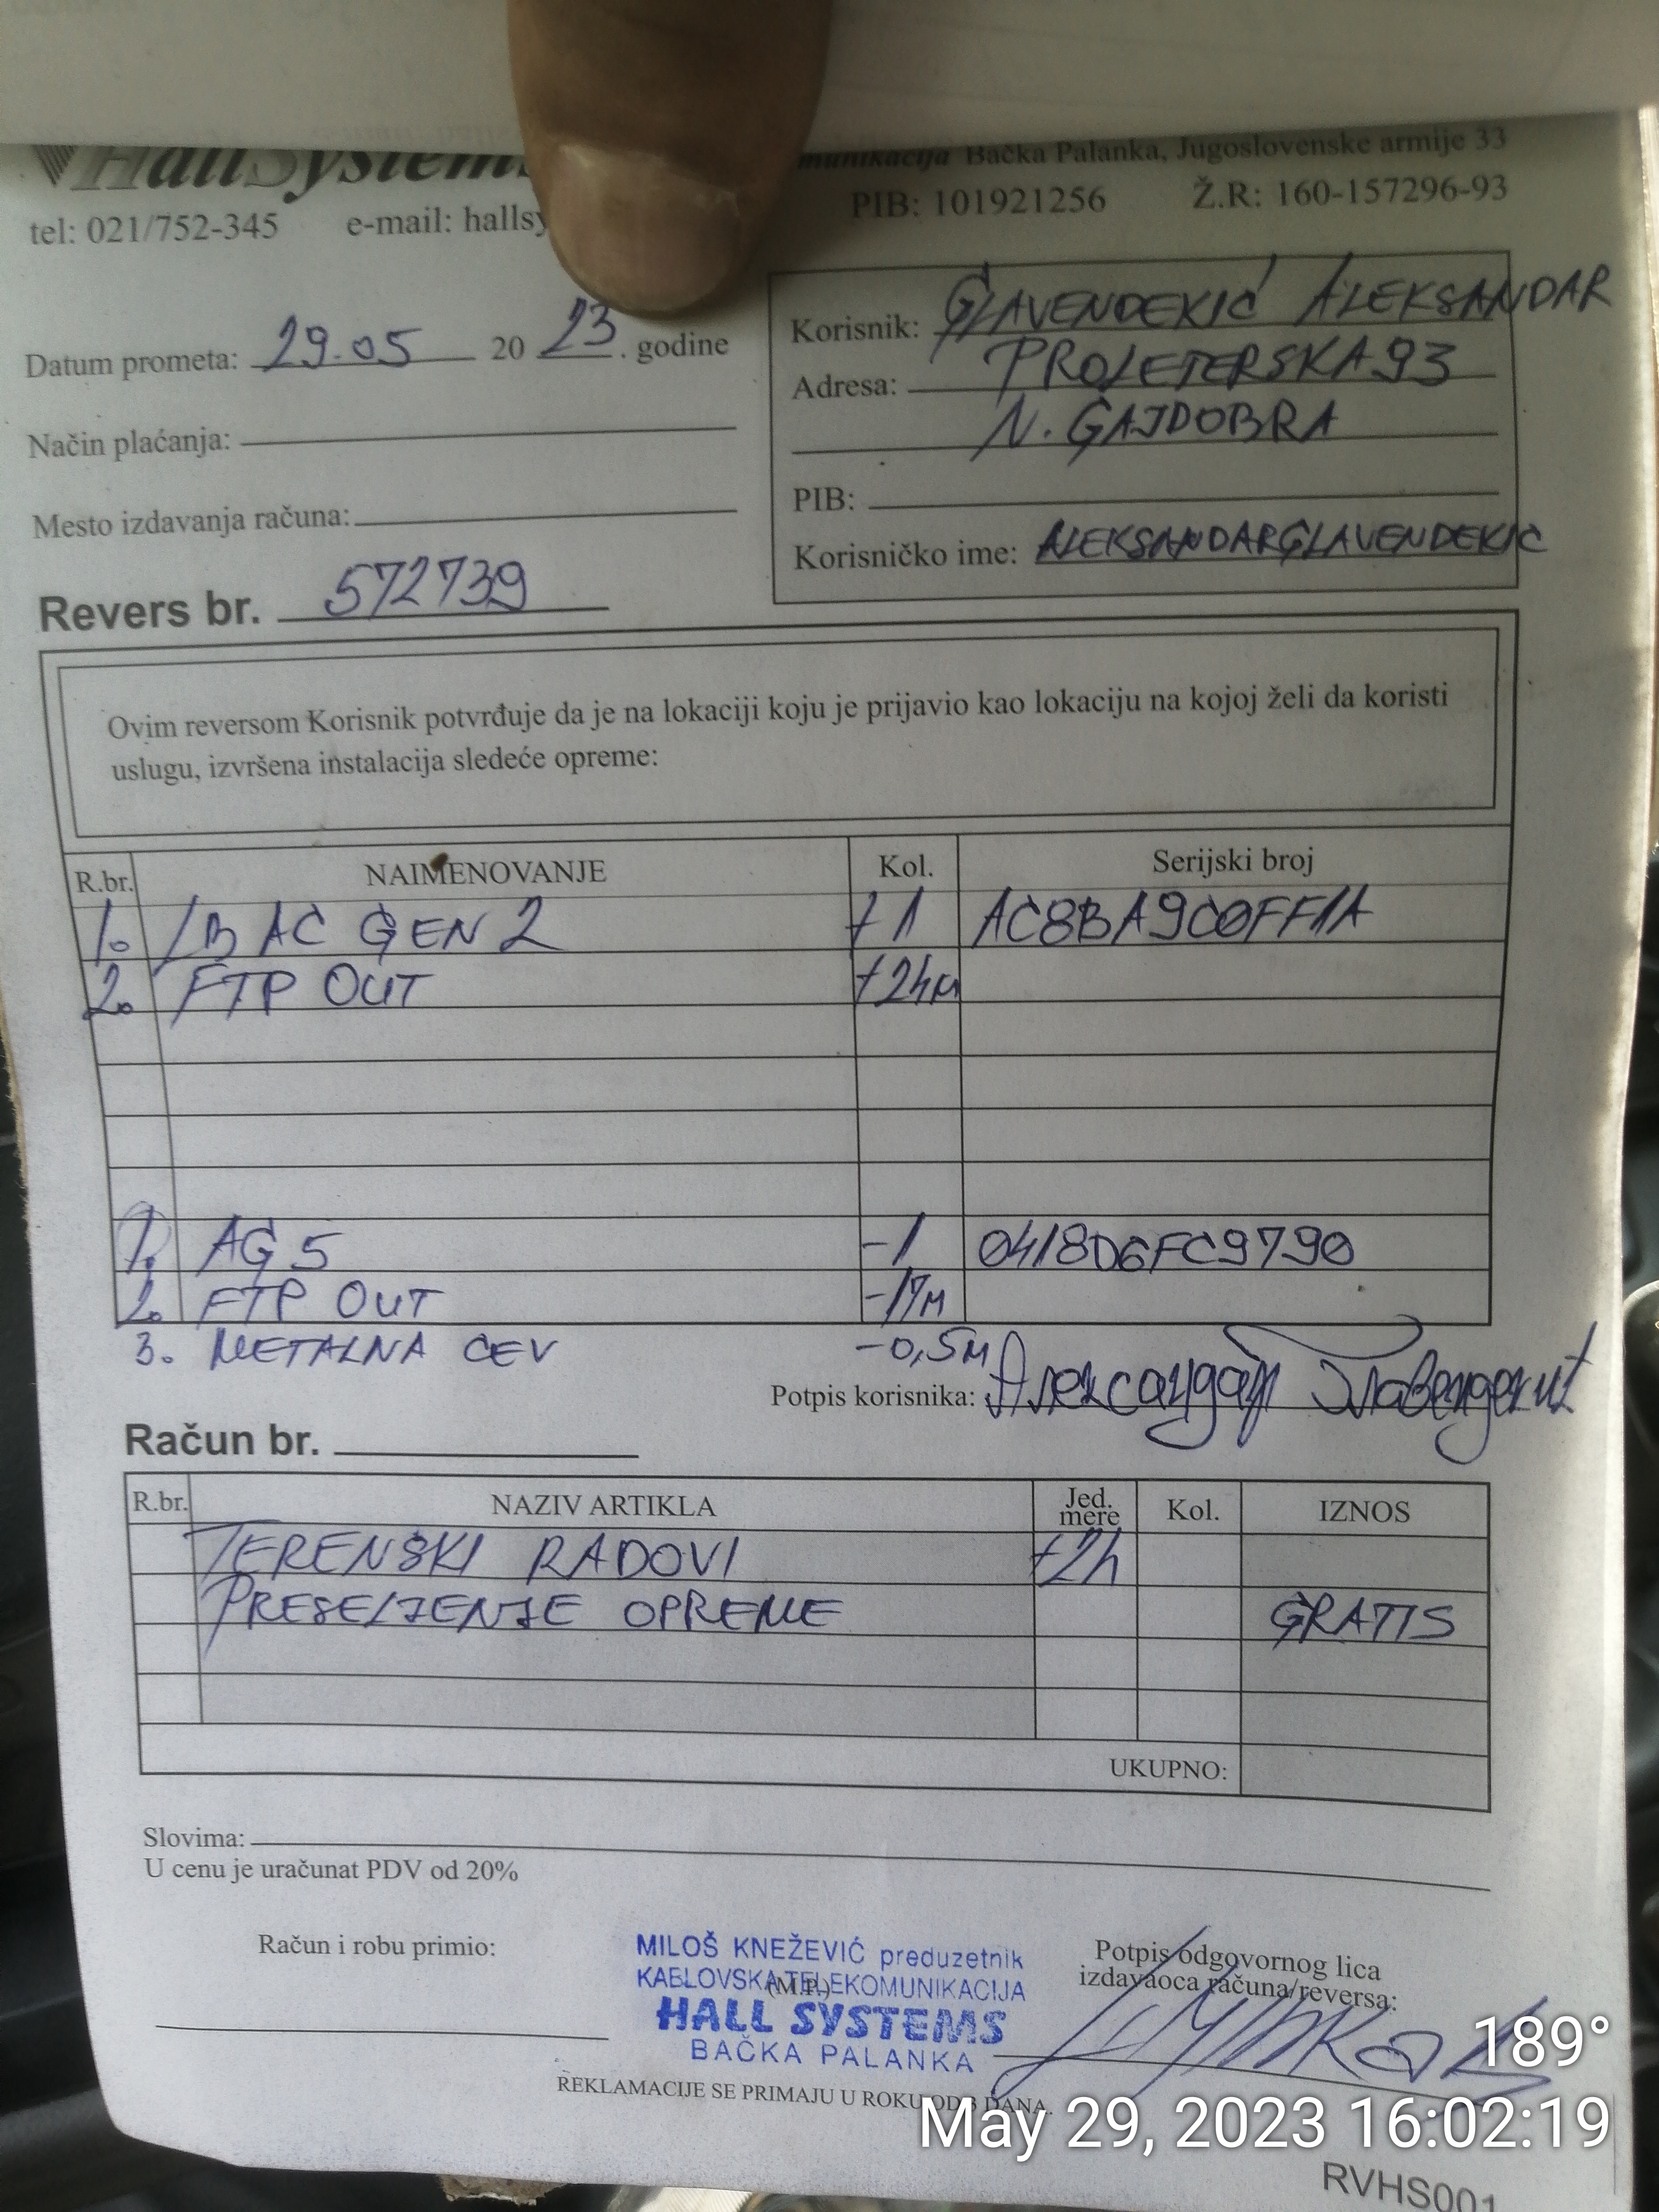 HallSystems
munikacija Bačka Palanka, Jugoslovenske armije 33
tel: 021/752-345 e-mail: hallsy
PIB: 101921256 Ž.R: 160-157296-93
Datum prometa: 29.05 2023. godine
Način plaćanja:
Mesto izdavanja računa:
Revers br. 572739
Korisnik: GLAVENDEKIĆ ALEKSANDAR
Adresa: PROLETERSKA 93
N. GAJDOBRA
PIB:
Korisničko ime: ALEKSANDARGLAVENDEKIC
Ovim reversom Korisnik potvrđuje da je na lokaciji koju je prijavio kao lokaciju na kojoj želi da koristi
uslugu, izvršena instalacija sledeće opreme:
R.br. NAIMENOVANJE Kol. Serijski broj
1. LB AC GEN 2 +1 AC8BA9C0FF1A
2. FTP OUT +24m
1. AG 5 -1 0418D6FC9790
2. FTP OUT -17m
3. METALNA CEV -0,5m
Potpis korisnika: Александар Главендекић
Račun br.
R.br. NAZIV ARTIKLA Jed. mere Kol. IZNOS
TERENSKI RADOVI +2h
PRESELJENJE OPREME GRATIS
UKUPNO:
Slovima:
U cenu je uračunat PDV od 20%
Račun i robu primio:
MILOŠ KNEŽEVIĆ preduzetnik
KABLOVSKA TELEKOMUNIKACIJA
(M.P.)
HALL SYSTEMS
BAČKA PALANKA
Potpis odgovornog lica
izdavaoca računa/reversa:
REKLAMACIJE SE PRIMAJU U ROKU OD 3 DANA.
189°
May 29, 2023 16:02:19
RVHS001